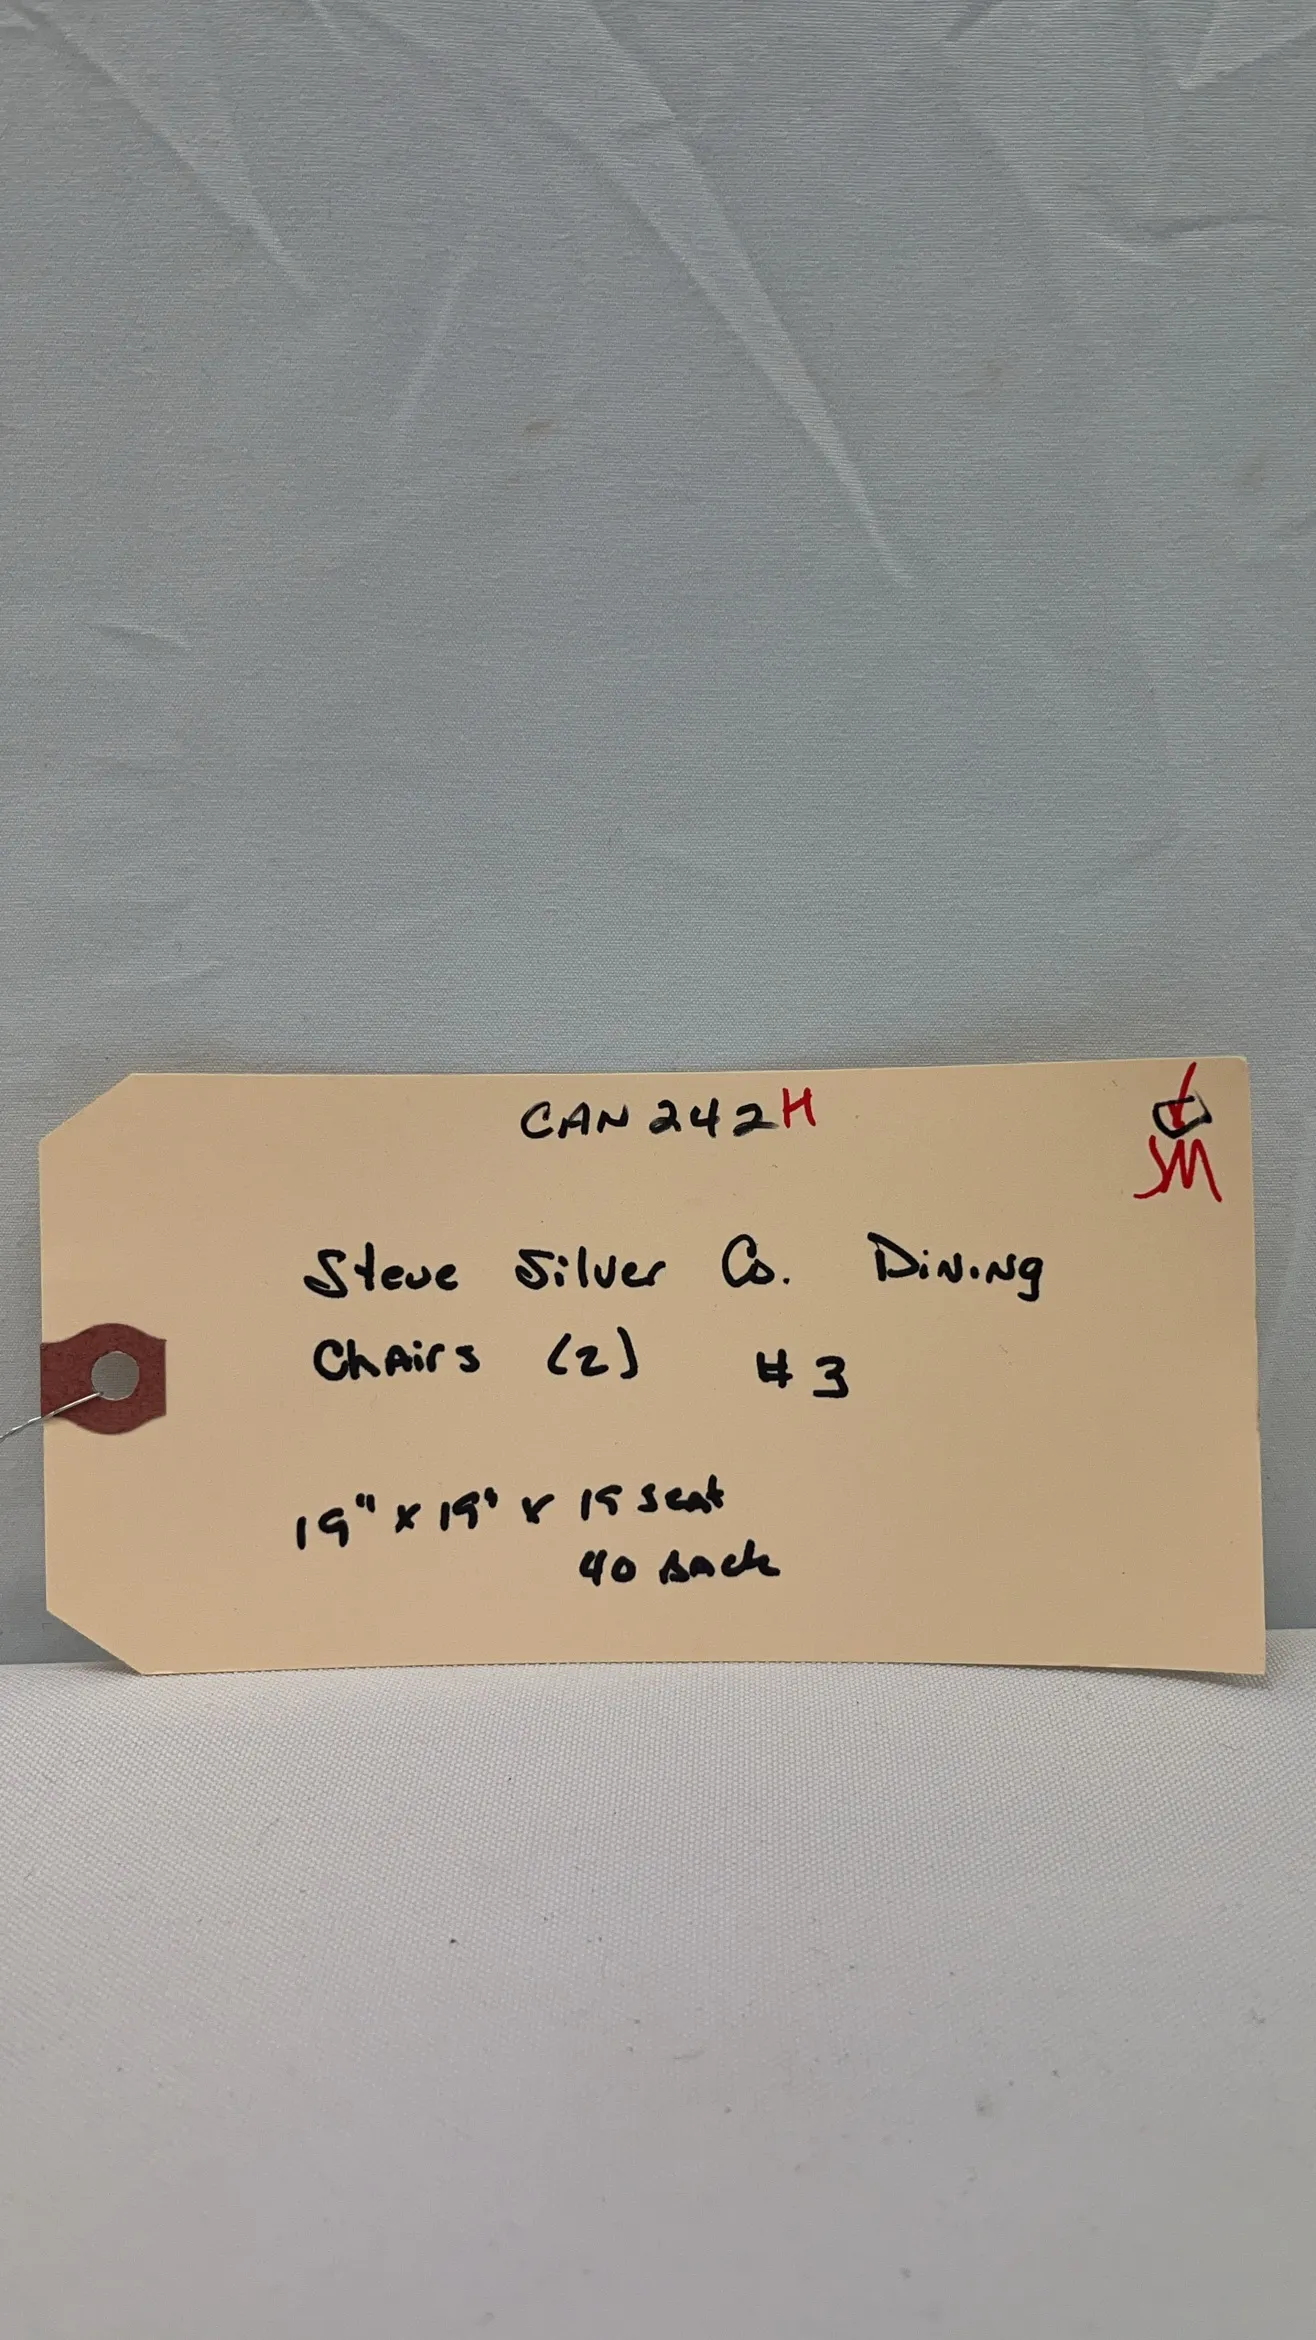 CAN242H
SM
Steve Silver Co. Dining
Chairs (2) #3
19" x 19" x 19 seat
40 Back